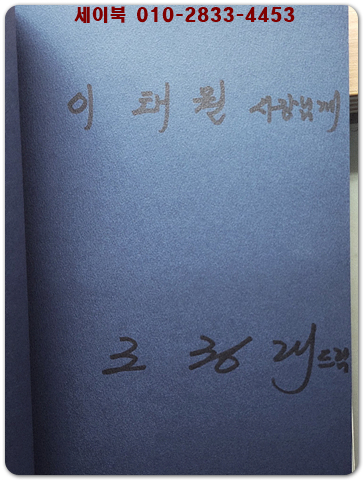 세이북 010-2833-4453
이 태 원 사장님께
드림